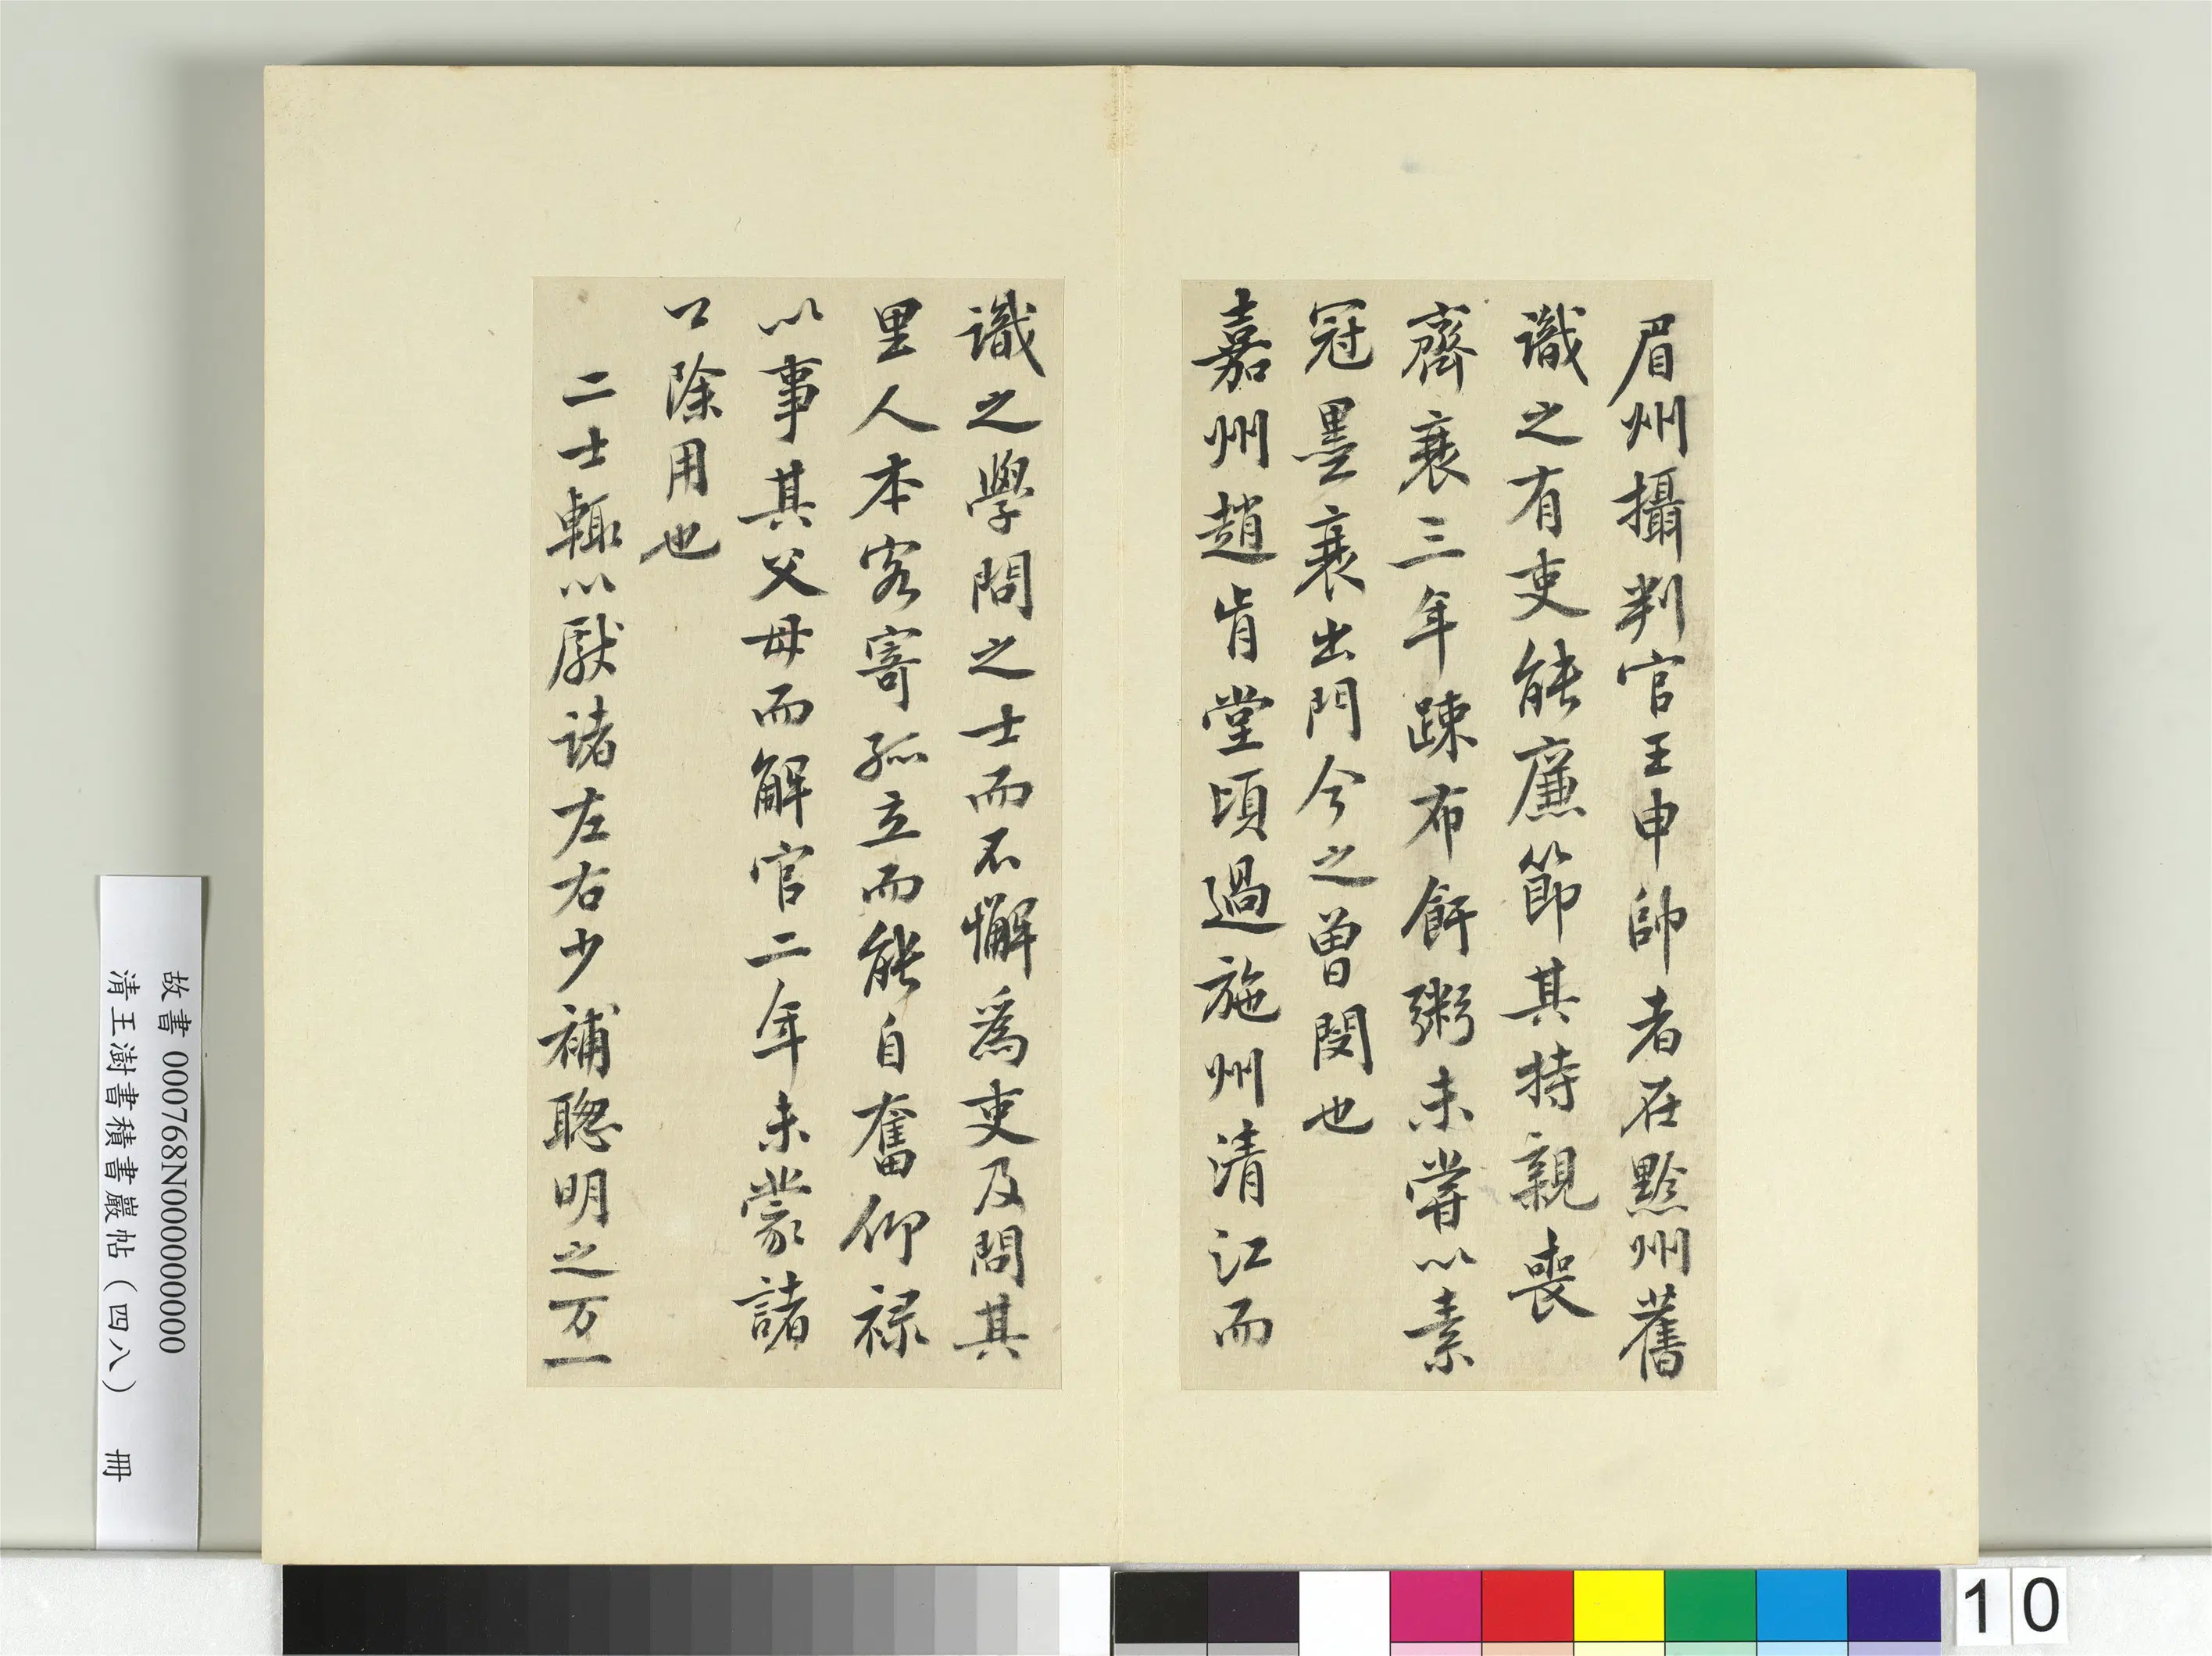 眉州攝判官王申帥者在黔州舊
識之有吏能廉節其持親喪
齊衰三年踈布飦粥未嘗以素
冠墨衰出門今之曾閔也
嘉州趙肯堂頃過施州清江而
識之學問之士而不懈為吏及問其
里人本客寄孤立而能自奮仰祿
以事其父母而解官二年未蒙諸
口除用也
二士輒以獻諸左右少補聰明之万一
故書 000768N000000000
清王澍書積書巖帖（四八） 冊
10